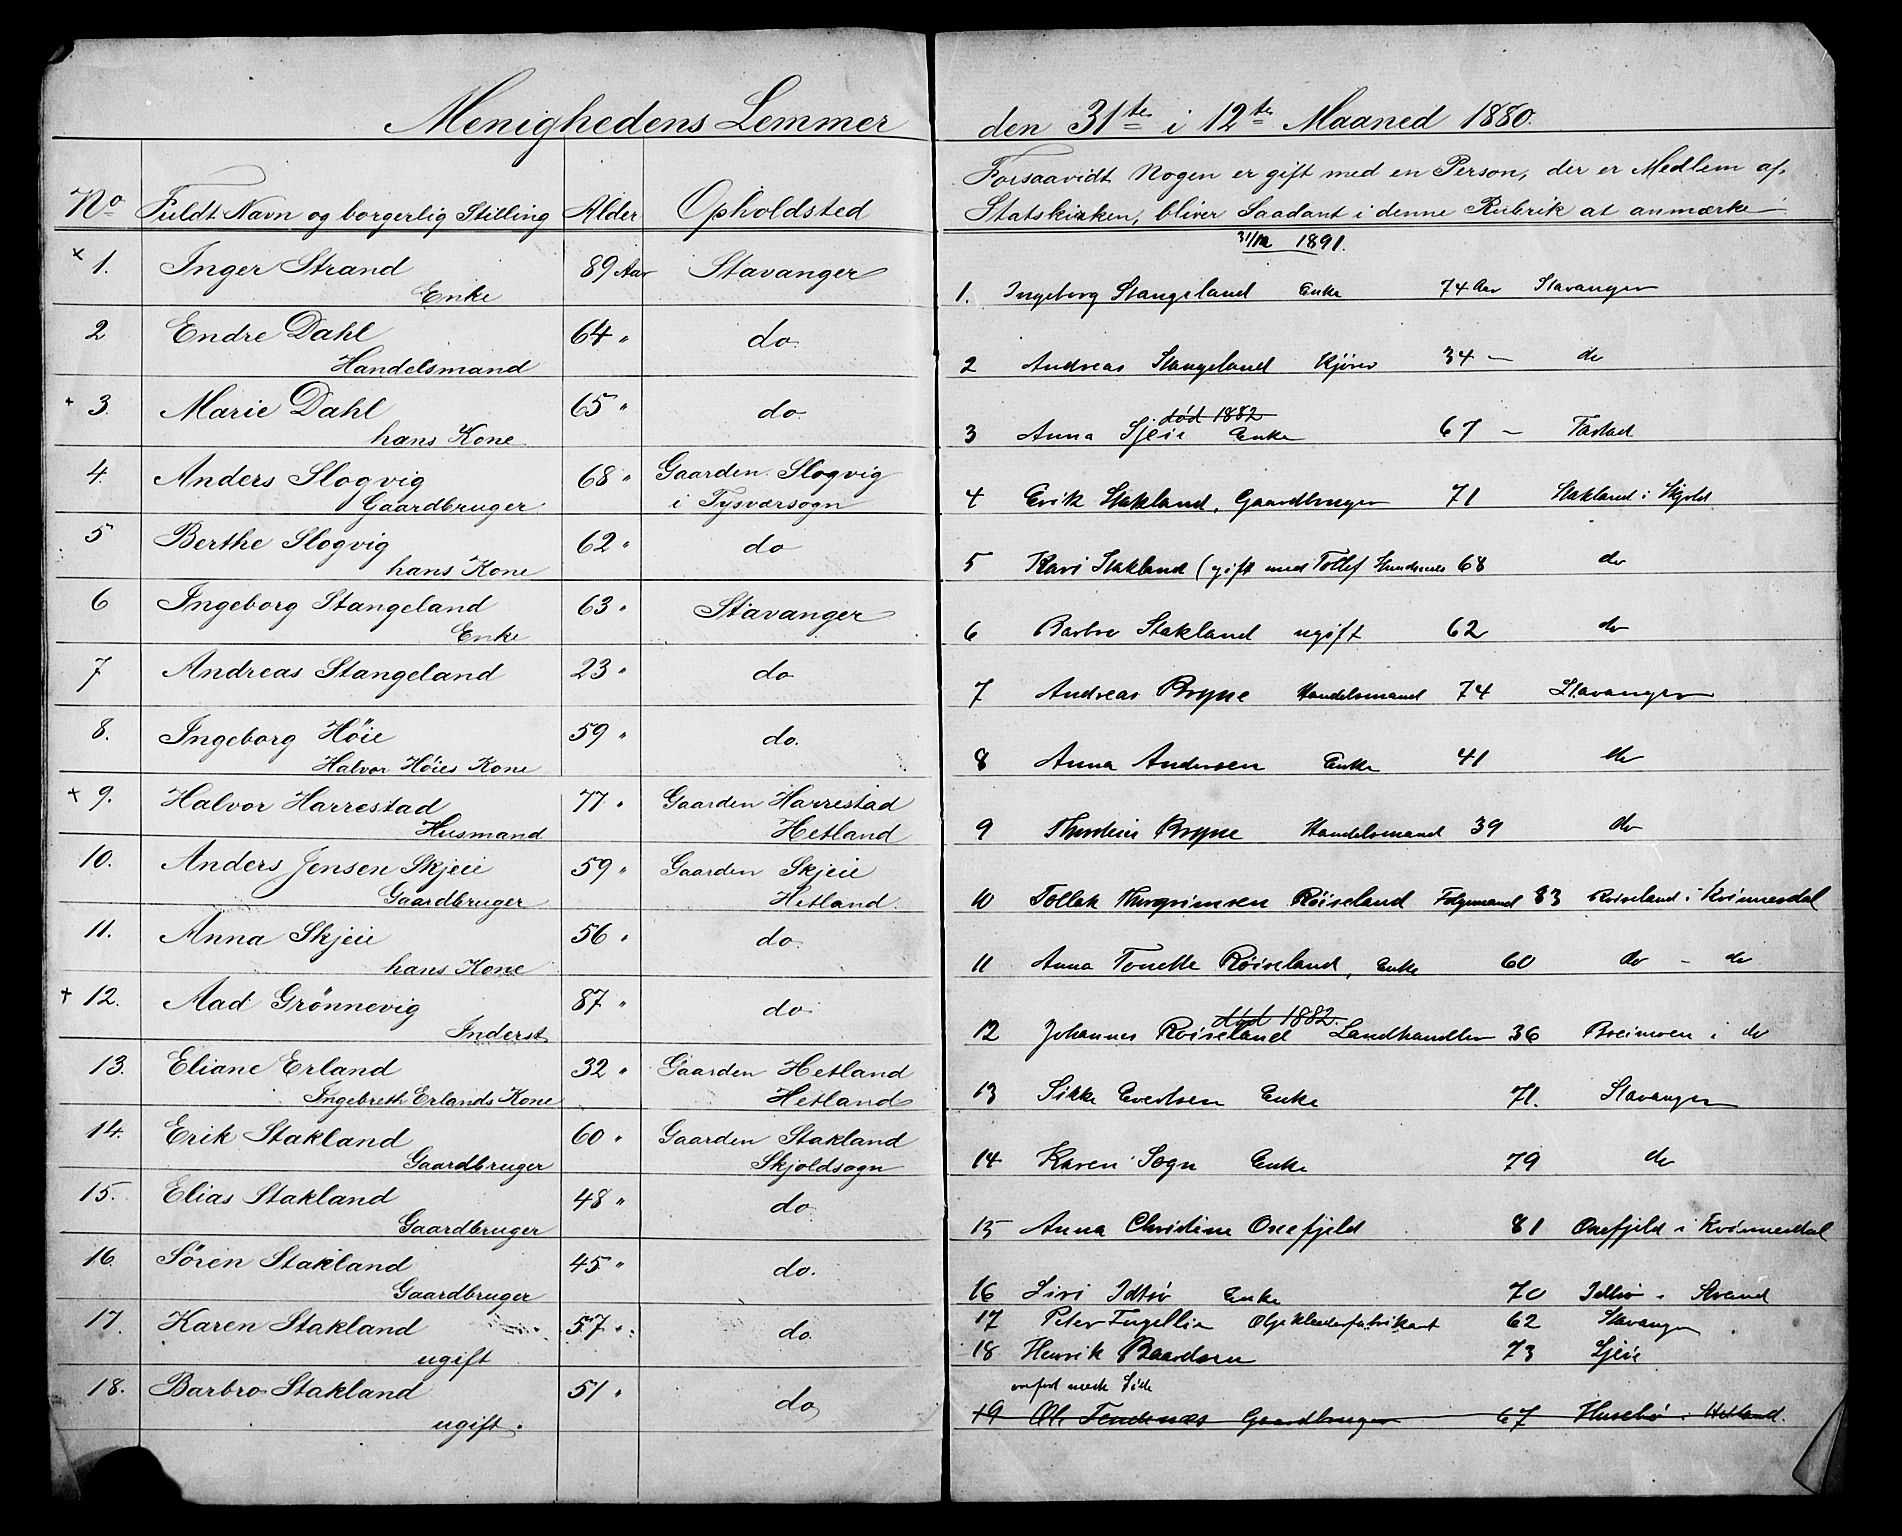 Menighedens Lemmer
No Fuldt Navn og borgerlig Stilling Alder Opholdsted
+ 1. Inger Strand 89 Aar Stavanger
Enke
2 Endre Dahl 64 " do
Handelsmand
+ 3. Marie Dahl 65 " do
hans Kone
4. Anders Slogvig 68 " Gaarden Slogvig
Gaardbruger i Tysværsogn
5 Berthe Slogvig 62 " do
hans Kone
6 Ingeborg Stangeland 63 " Stavanger
Enke
7 Andreas Stangeland 23 " do
8. Ingeborg Höie 59 " do.
Halvor Höies Kone
+ 9. Halvor Harrestad 77 " Gaarden Harrestad
Husmand Hetland
10. Anders Jensen Skjeie 59 " Gaarden Skjeie
Gaardbruger Hetland
11. Anna Skjeie 56 " do
hans Kone
+ 12. Aad Grönnevig 87 " do
Inderst
13. Eliane Erland 32 " Gaarden Hetland
Ingebreth Erlands Kone Hetland
14. Erik Stakland 60 " Gaarden Stakland
Gaardbruger Skjoldsogn
15. Elias Stakland 48 " do
Gaardbruger
16. Sören Stakland 45 " do.
Gaardbruger
17. Karen Stakland 57 " do
ugift
18. Barbro Stakland 51 " do
ugift.
den 31te i 12te Maaned 1880.
Forsaavidt Nogen er gift med en Person, der er Medlem af
Statskirken, bliver Saadant i denne Rubrik at anmærke
31/12 1891.
1. Ingeborg Stangeland Enke 74 Aar Stavanger
2 Andreas Stangeland Kjører 34 — do
død 1882
3 Anna Sjeie Enke 67 — Tastad
4 Erik Stakland, Gaardbruger 71 Stakland i Skjold
5 Kari Stakland (gift med Tollef 68 do
6 Barbro Stakland ugift 62 do
7 Andreas Bryne Handelsmand 74 Stavanger
8 Anna Andersen Enke 41 do
9 Thorstein Bryne Handelsmand 39 do
10 Tollak Thorgrimsen Röiseland 83 Röiseland i Kvinnesdal
11 Anna Tonette Röiseland, Enke 60 do – do
død 1882.
12 Johannes Röiseland Landhandler 36 Breimoen i do
13 Sikke Evertsen Enke 71. Stavanger
14 Karen Sogn Enke 79 do
15 Anna Christine Osefjeld 81 Osefjeld i Kvinnesdal
16 Siri Idsø Enke 70 Idsø i Strand
17 Peter Fugellie Oljeklædefabrikant 62 Stavanger
18 Henrik Baardsen 73 Sjeie
overført næste Side
19 Ole Gaardbruger 67 Husebø i Hetland.